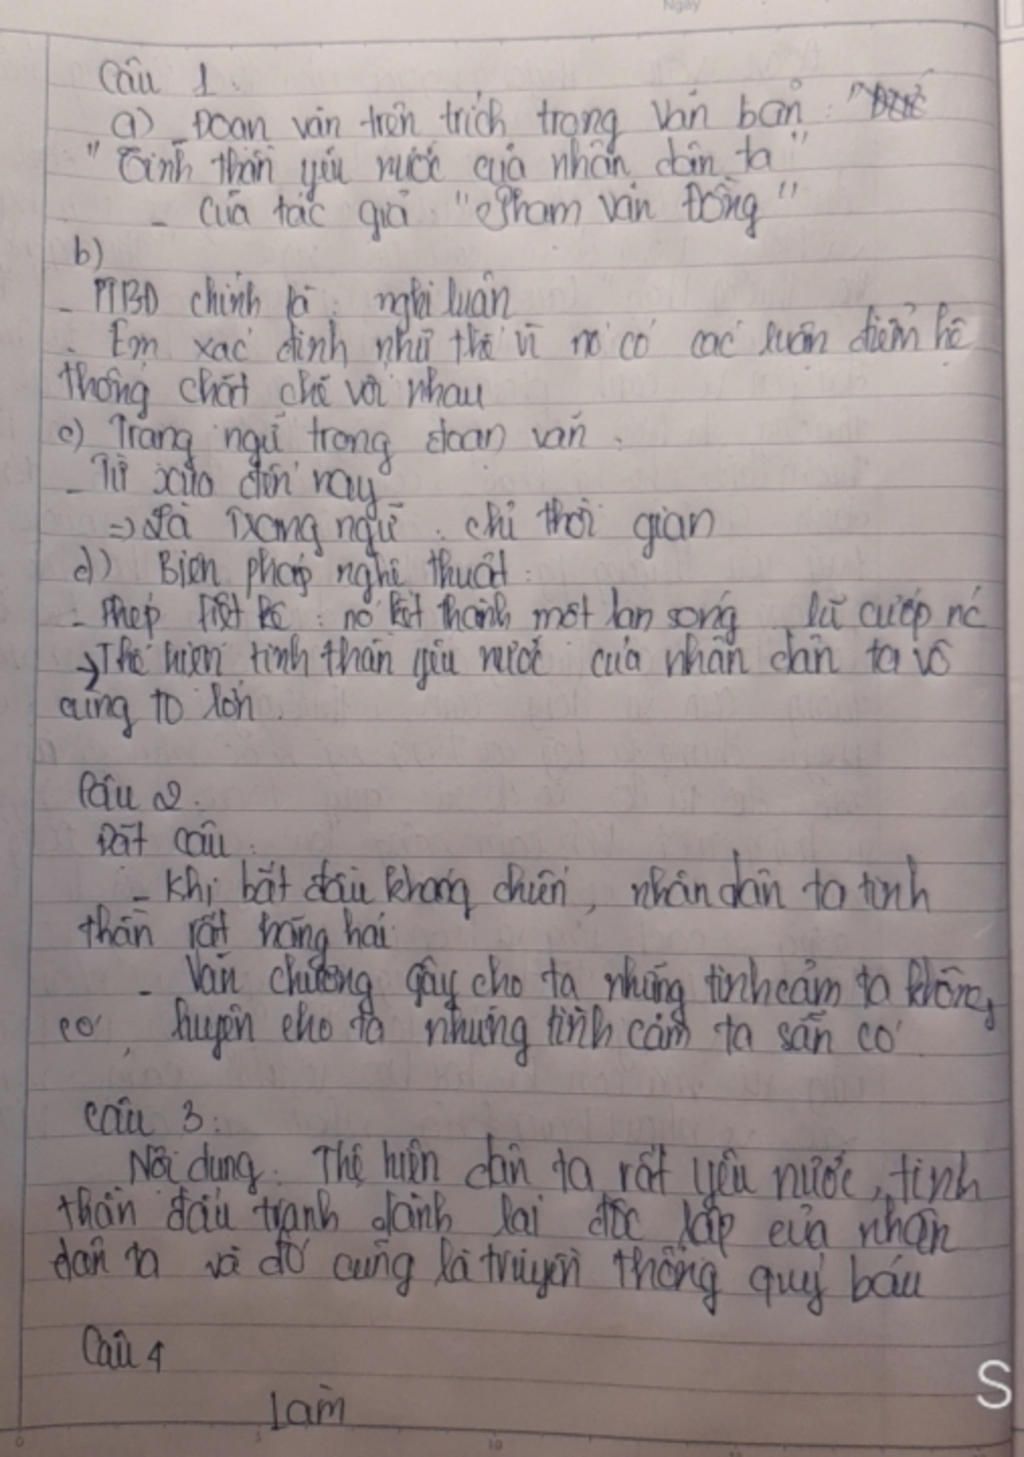 Ngày
Câu 1.
a) - Đoạn văn trên trích trong văn bản: "
"Tinh thần yêu nước của nhân dân ta"
- Của tác giả "Phạm Văn Đồng"
b)
- PTBĐ chính là: nghị luận
- Em xác định như thế vì nó có các luận điểm hệ
thống chặt chẽ với nhau
c) Trạng ngữ trong đoạn văn:
- Từ xưa đến nay
=> Là Trạng ngữ: chỉ thời gian
d) Biện pháp nghệ thuật:
- Phép liệt kê: nó kết thành một làn sóng lũ cướp nc
→ Thể hiện tinh thần yêu nước của nhân dân ta vô
cùng to lớn.
Câu 2.
Đặt câu:
- Khi bắt đầu kháng chiến, nhân dân ta tinh
thần rất hăng hái
- Văn chương gây cho ta những tình cảm ta không
có, luyện cho ta những tình cảm ta sẵn có
Câu 3:
Nội dung: Thể hiện dân ta rất yêu nước, tinh
thần đấu tranh dành lại độc lập của nhân
dân ta và đó cũng là truyền thống quý báu
Câu 4
Làm
S
0 5 10